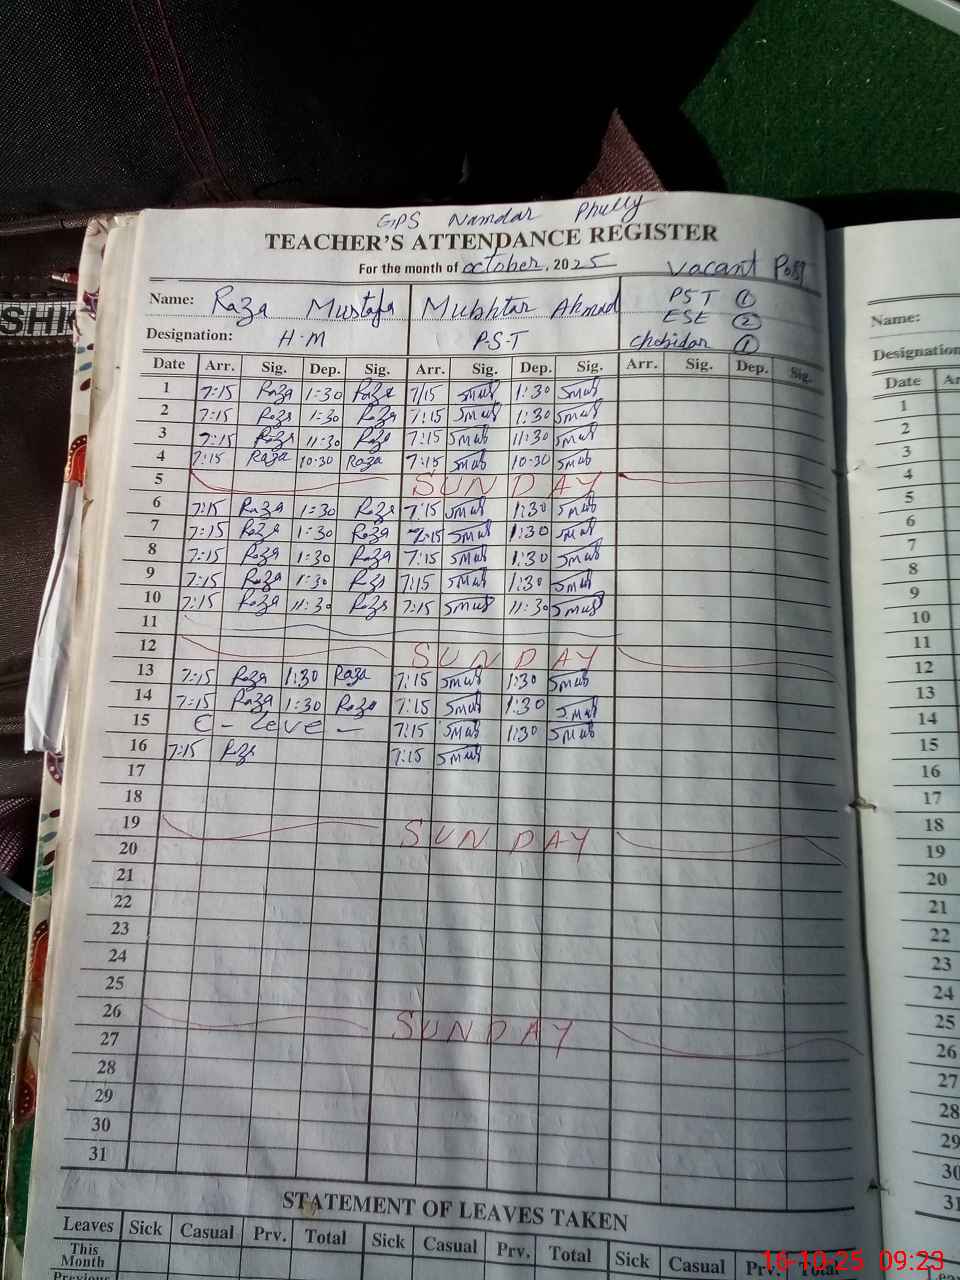 GPS Namdar Phully
TEACHER'S ATTENDANCE REGISTER
For the month of october, 2025 Vacant Post
Name: Raza Mustafa Mubhtar Ahmad PST ①
ESE ②
Designation: H-M P-S-T Chobidar ①
Date Arr. Sig. Dep. Sig. Arr. Sig. Dep. Sig. Arr. Sig. Dep. Sig.
1 7:15 Raza 1:30 Raza 7/15 1:30
2 7:15 Raza 1:30 Raza 7:15 1:30
3 7:15 Raza 11:30 Raza 7:15 11:30
4 7:15 Raza 10-30 Raza 7:15 10-30
5 SUNDAY
6 7:15 Raza 1:30 Raza 7:15 1:30
7 7:15 Raza 1:30 Raza 7:15 1:30
8 7:15 Raza 1:30 Raza 7:15 1:30
9 7:15 Raza 1:30 Raza 7:15 1:30
10 7:15 Raza 11:30 Raza 7:15 11:30
11
12 SUNDAY
13 7:15 Raza 1:30 Raza 7:15 1:30
14 7:15 Raza 1:30 Raza 7:15 1:30
15 C - leve - 7:15 1:30
16 7:15 Raza 7:15
17
18
19 SUNDAY
20
21
22
23
24
25
26 SUNDAY
27
28
29
30
31
STATEMENT OF LEAVES TAKEN
Leaves Sick Casual Prv. Total Sick Casual Prv. Total Sick Casual Prv. Total
This
Month
Previous
Name:
Designation
Date
1
2
3
4
5
6
7
8
9
10
11
12
13
14
15
16
17
18
19
20
21
22
23
24
25
26
27
28
29
30
31
SHI
16-10-25 09:23